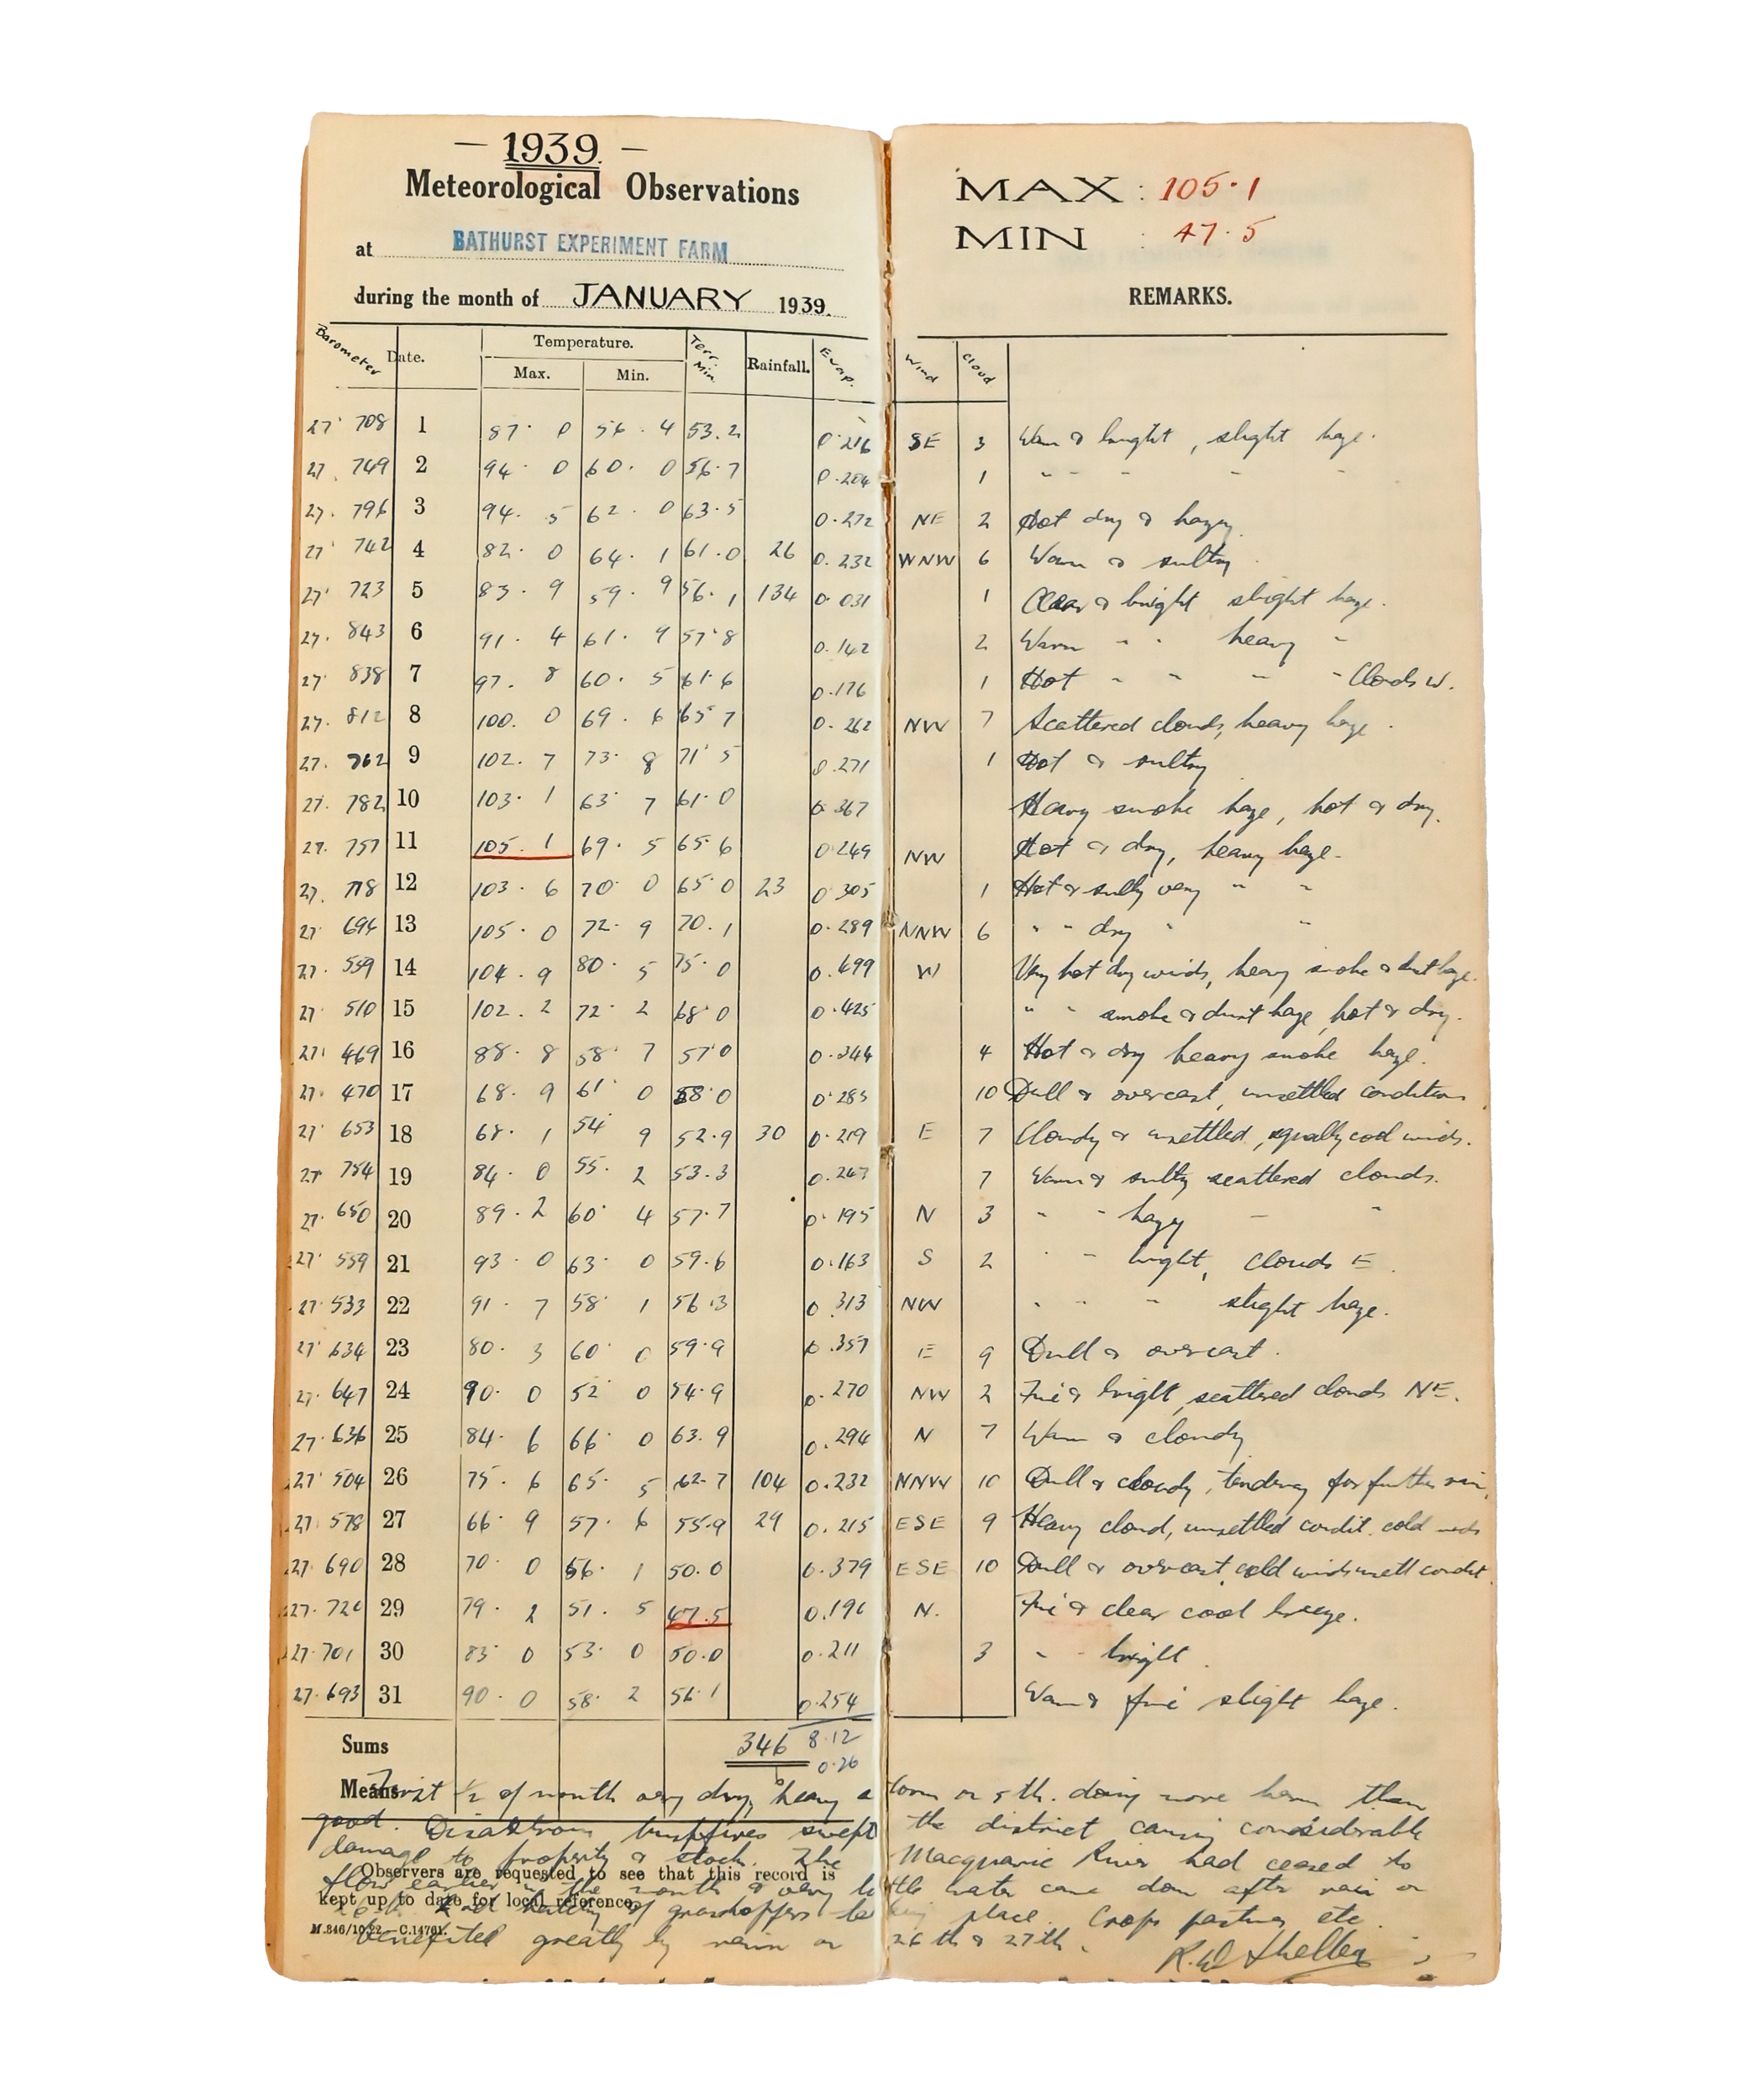 — 1939. —
Meteorological Observations
at BATHURST EXPERIMENT FARM
during the month of JANUARY 1939.
MAX : 105·1
MIN : 47·5
REMARKS.
Barometer Date. Temperature. Max. Min. Terr. Min. Rainfall. Evap. Wind Cloud
27· 708 1 87· 0 56· 4 53.2 0·216 SE 3 Warm & bright, slight haze.
27. 749 2 94· 0 60. 0 56.7 0.204 1 " " " " "
27. 796 3 94. 5 62. 0 63.5 0.272 NE 2 Hot dry & hazy.
27· 742 4 82. 0 64. 1 61.0 26 0.232 WNW 6 Warm & sultry.
27· 723 5 83. 9 59. 9 56.1 134 0.031 1 Clear & bright slight haze.
27. 843 6 91. 4 61. 9 57.8 0.142 2 Warm " " heavy "
27· 838 7 97. 8 60. 5 61.6 0.176 1 Hot " " " " Clouds W.
27. 812 8 100. 0 69. 6 65 7 0.262 NW 7 Scattered clouds, heavy haze.
27. 762 9 102. 7 73· 8 71· 5 0.271 1 Hot & sultry
27. 782 10 103· 1 63· 7 61·0 0.367 Heavy smoke haze, hot & dry.
27. 757 11 105. 1 69. 5 65·6 0·249 NW Hot & dry, heavy haze.
27. 778 12 103. 6 70· 0 65·0 23 0·305 1 Hot & sultry very " "
27· 694 13 105. 0 72. 9 70.1 0.289 NNW 6 " " dry " "
27. 559 14 104. 9 80. 5 75.0 0.499 W Very hot dry winds, heavy smoke & dust haze.
27· 510 15 102. 2 72· 2 68·0 0.425 " " smoke & dust haze, hot & dry.
27· 469 16 88. 8 58· 7 57·0 0.344 4 Hot & dry heavy smoke haze.
27. 470 17 68. 9 61· 0 58·0 0·285 10 Dull & overcast, unsettled conditions.
27· 653 18 68. 1 54 9 52.9 30 0.219 E 7 Cloudy & unsettled, squally cool winds.
27· 754 19 84. 0 55. 2 53.3 0.247 7 Warm & sultry scattered clouds.
27· 650 20 89. 2 60· 4 57.7 0.195 N 3 " " hazy " "
27· 559 21 93· 0 63· 0 59.6 0.163 S 2 " " bright, clouds E.
27· 533 22 91. 7 58· 1 56.3 0.313 NW " " " slight haze.
27· 634 23 80. 3 60· 0 59.9 0.357 E 9 Dull & overcast.
27. 647 24 90. 0 52 0 54.9 0.270 NW 2 Fine & bright, scattered clouds NE.
27· 636 25 84. 6 66· 0 63.9 0.294 N 7 Warm & cloudy
27· 504 26 75. 6 65. 5 62.7 104 0.232 NNW 10 Dull & cloudy, tendency for further rain.
27 578 27 66. 9 57. 6 55.9 29 0.215 ESE 9 Heavy cloud, unsettled condit. cold winds
27. 690 28 70· 0 56· 1 50.0 0.379 ESE 10 Dull & overcast, cold winds unsett condit
27. 726 29 79. 2 51. 5 47.5 0.196 N. Fine & clear cool breeze.
27· 701 30 83· 0 53· 0 50.0 0.211 3 " " bright.
27. 693 31 90. 0 58. 2 56.1 0.254 Warm & fine slight haze.
Sums 346 8.12
0.26
Means
First ½ of month very dry, heavy storm on 5th. doing more harm than
good. Disastrous bushfires swept the district causing considerable
damage to property & stock. The Macquarie River had ceased to
Observers are requested to see that this record is
flow earlier in the month & very little water came down after rain on
kept up to date for local reference.
hatching of grasshoppers being place. Crops pastures etc.
M.346/10.32—C.14761.
benefited greatly by rain on 26th & 27th.
R.W. Shelley